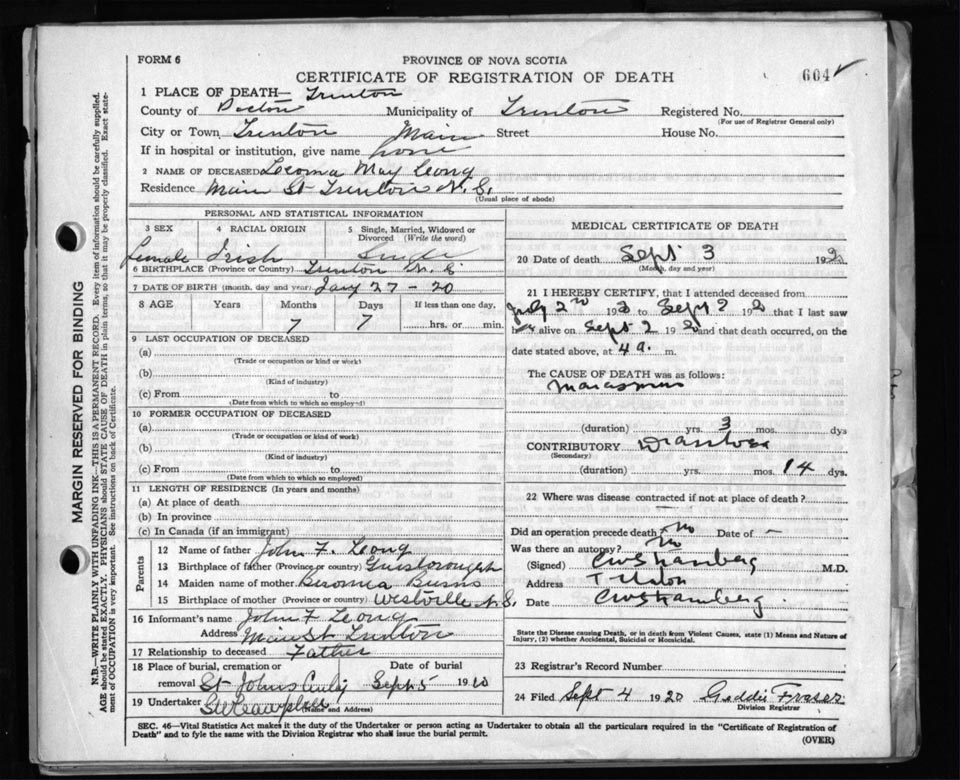 FORM 6
PROVINCE OF NOVA SCOTIA
604
CERTIFICATE OF REGISTRATION OF DEATH
1 PLACE OF DEATH— Trenton
County of Pictou Municipality of Trenton Registered No.
(For use of Registrar General only)
City or Town Trenton Main Street House No.
If in hospital or institution, give name home
2 NAME OF DECEASED Leoma May Leong
Residence Main St Trenton N. S.
(Usual place of abode)
PERSONAL AND STATISTICAL INFORMATION
3 SEX 4 RACIAL ORIGIN 5 Single, Married, Widowed or Divorced (Write the word)
Female Irish Single
6 BIRTHPLACE (Province or Country) Trenton N. S
7 DATE OF BIRTH (month, day and year) Jany 27 - 20
8 AGE Years Months Days If less than one day,
7 7 hrs. or min.
9 LAST OCCUPATION OF DECEASED
(a)
(Trade or occupation or kind or work)
(b)
(Kind of industry)
(c) From to
(Date from which to which so employed)
10 FORMER OCCUPATION OF DECEASED
(a)
(Trade or occupation or kind of work)
(b)
(Kind of industry)
(c) From to
(Date from which to which so employed)
11 LENGTH OF RESIDENCE (In years and months)
(a) At place of death
(b) In province
(c) In Canada (if an immigrant)
Parents
12 Name of father John F. Leong
13 Birthplace of father (Province or country) Guysborough
14 Maiden name of mother Burns
15 Birthplace of mother (Province or country) Westville N. S.
16 Informant's name John F Leong
Address Main St Trenton
17 Relationship to deceased Father
18 Place of burial, cremation or Date of burial
removal St Johns Sept 5 1920
19 Undertaker
(Name and Address)
MEDICAL CERTIFICATE OF DEATH
20 Date of death Sept 3 192
(Month, day and year)
21 I HEREBY CERTIFY, that I attended deceased from
July 2nd 192 to Sept 2 192 that I last saw
her alive on Sept 2 192 and that death occurred, on the
date stated above, at 4 a. m.
The CAUSE OF DEATH was as follows:
Marasmus
(duration) yrs. 3 mos. dys
CONTRIBUTORY Diarrhoea
(Secondary)
(duration) yrs. mos. 14 dys.
22 Where was disease contracted if not at place of death?
Did an operation precede death? No Date of -
Was there an autopsy? No
(Signed) M.D.
Address Trenton
Date
State the Disease causing Death, or in death from Violent Causes, state (1) Means and Nature of
Injury, (2) whether Accidental, Suicidal or Homicidal.
23 Registrar's Record Number
24 Filed Sept 4 1920 Geddie Fraser
Division Registrar
SEC. 46—Vital Statistics Act makes it the duty of the Undertaker or person acting as Undertaker to obtain all the particulars required in the "Certificate of Registration of
Death" and to fyle the same with the Division Registrar who shall issue the burial permit.
(OVER)
MARGIN RESERVED FOR BINDING
N.B.—WRITE PLAINLY WITH UNFADING INK—THIS IS A PERMANENT RECORD. Every item of information should be carefully supplied.
AGE should be stated EXACTLY. PHYSICIANS should STATE CAUSE OF DEATH in plain terms, so that it may be properly classified. Exact state-
ment of OCCUPATION is very important. See instructions on back of Certificate.